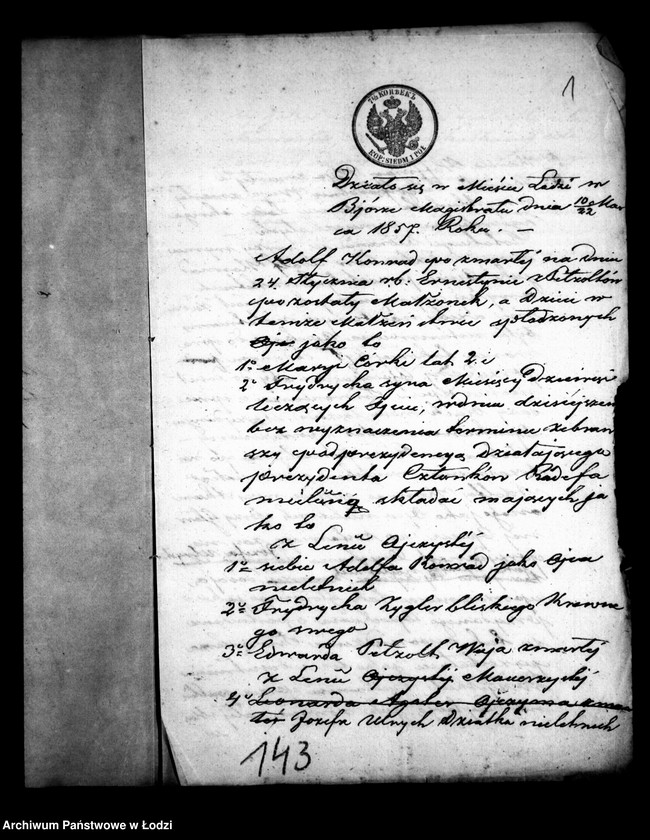 1
7½ КОПѢЕКЪ
KOP: SIEDM I PÓŁ
Działo się w Mieście Łodzi w
Biórze Magistratu dnia 10/22 Mar
ca 1857. Roku. —
Adolf Konrad po zmarłej na dniu
24. Stycznia r.b. Ernestynie Petzoltów
pozostały Małżonek, a Dzieci w
temże Małżeństwie spłodzonych
jako to
1° Maryi Córki lat 2. i
2° Frydrycha syna Miesięcy Dziewięć
liczących Ojciec, w dniu dzisiejszem
bez wyznaczenia terminu zebraw
szy pod prezydencyą działającego
prezydenta Członków Radę fa
milijną składać mających, ja
ko to
z Linii Ojczystéj
1° siebie Adolfa Konrad jako Ojca
nieletnich
2° Frydrycha Zygler bliskiego Krewne
go swego
3° Edwarda Petzolt Wuja zmarłej
z Linii Macierzystéj
4° Leonarda
Jozefa Ulrych Dziadka nieletnich
143
Archiwum Państwowe w Łodzi